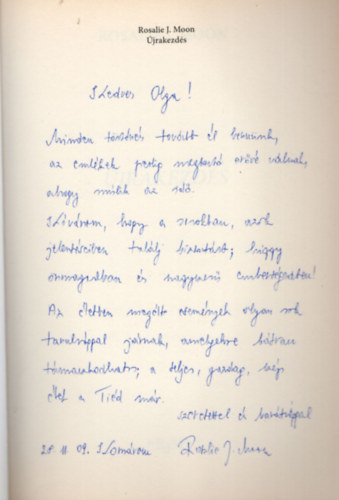 Rosalie J. Moon
Újrakezdés
Kedves Olga!
Minden történés tovább él bennünk,
az emlékek pedig maguktó válnak,
ahogy múlik az idő.
Kívánom, hogy a sorokban, azok
jelentéseiben találj bíztatást; higgy
önmagadban és nagyszerű emberségedben!
Az életben megélt események olyan sok
tanulsággal járnak, amelyekre bátran
támaszkodhatsz; a teljes, gazdag, szép
élet a Tiéd már.
szeretettel és barátsággal
20 II 09. Komárom Rosalie J. Moon